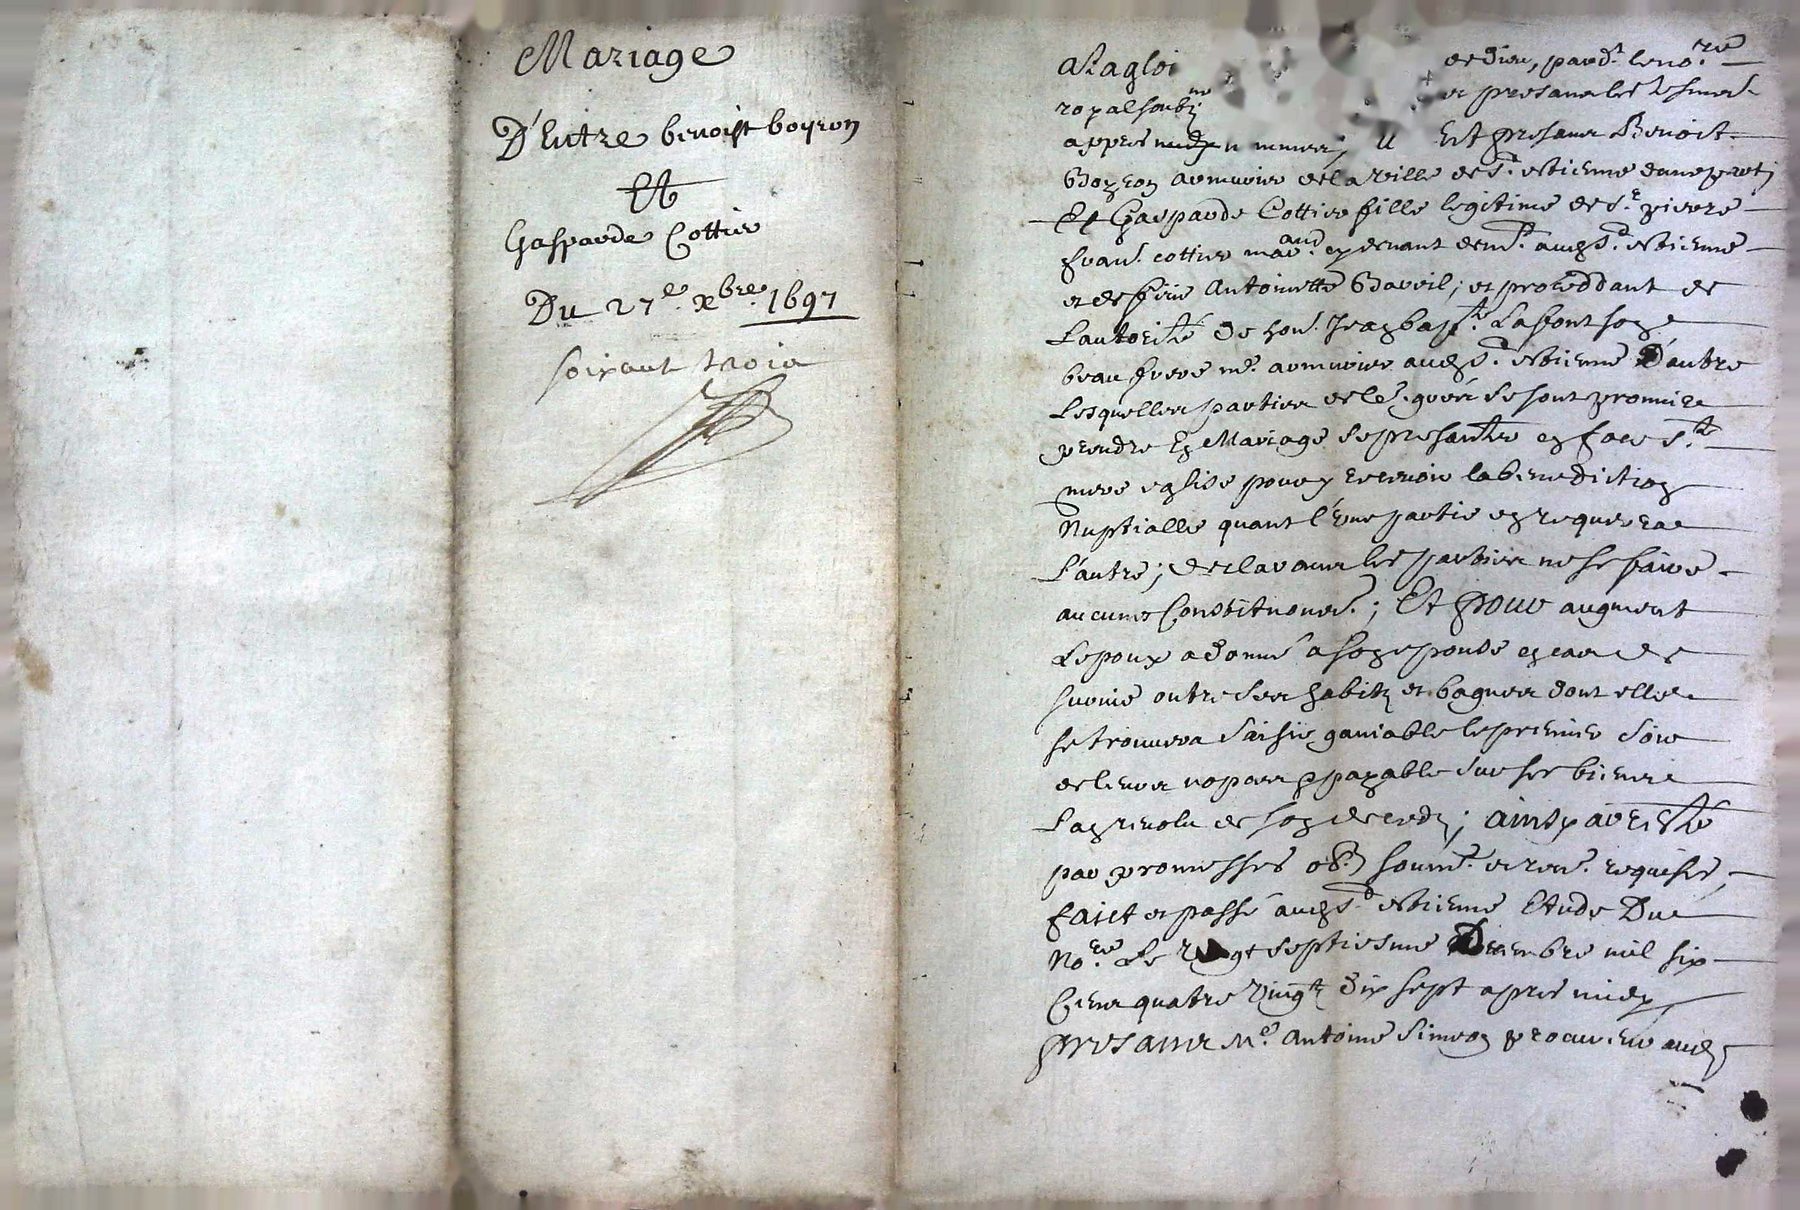 Mariage
D'Entre benoist boyron
Et
Gasparde Cottier
Du 27e xbre 1697
soixant trois
A la gloi de dieu, pard.t le no.re
royal soubz.ne et presans les tesmoins
Est presans Benoist
Boyron armurier de la ville de St. Estienne dune part
Et Gasparde Cottier fille legitime de Sr. pierre
fran. cottier mar.and audt St. Estienne
et de feue Antoinette Bareil; et proceddant de
Lautorité de hon. Jean bapt.te Lafont son
beau frere me. armurier audt St. Estienne D'autre
Lesquelles parties de le. gré se sont promis
prendre En Mariage se presanter en face Ste
mere eglise pour y recevoir la benediction
Nuptialle quant l'une partie en requerra
L'autre; declarans les parties ne se faire
aucune Constitution; Et pour augment
Lepoux a donné a son epouse en cas de
survie outre ses habitz et bagues dont elle
se trouvera saisie ganiable le premier soir
de leurs nopces payable sur ses biens
Lan revolu de son deceds; ainsy aresté
par promesses ob. soum. et ren. requises,
faict et passé audt St. Estienne Etude Du
No.re Le vingt septiesme Decembre mil six
Cens quatre vingt dix sept apres midy
presans Me. Antoine Simeon procureur aud